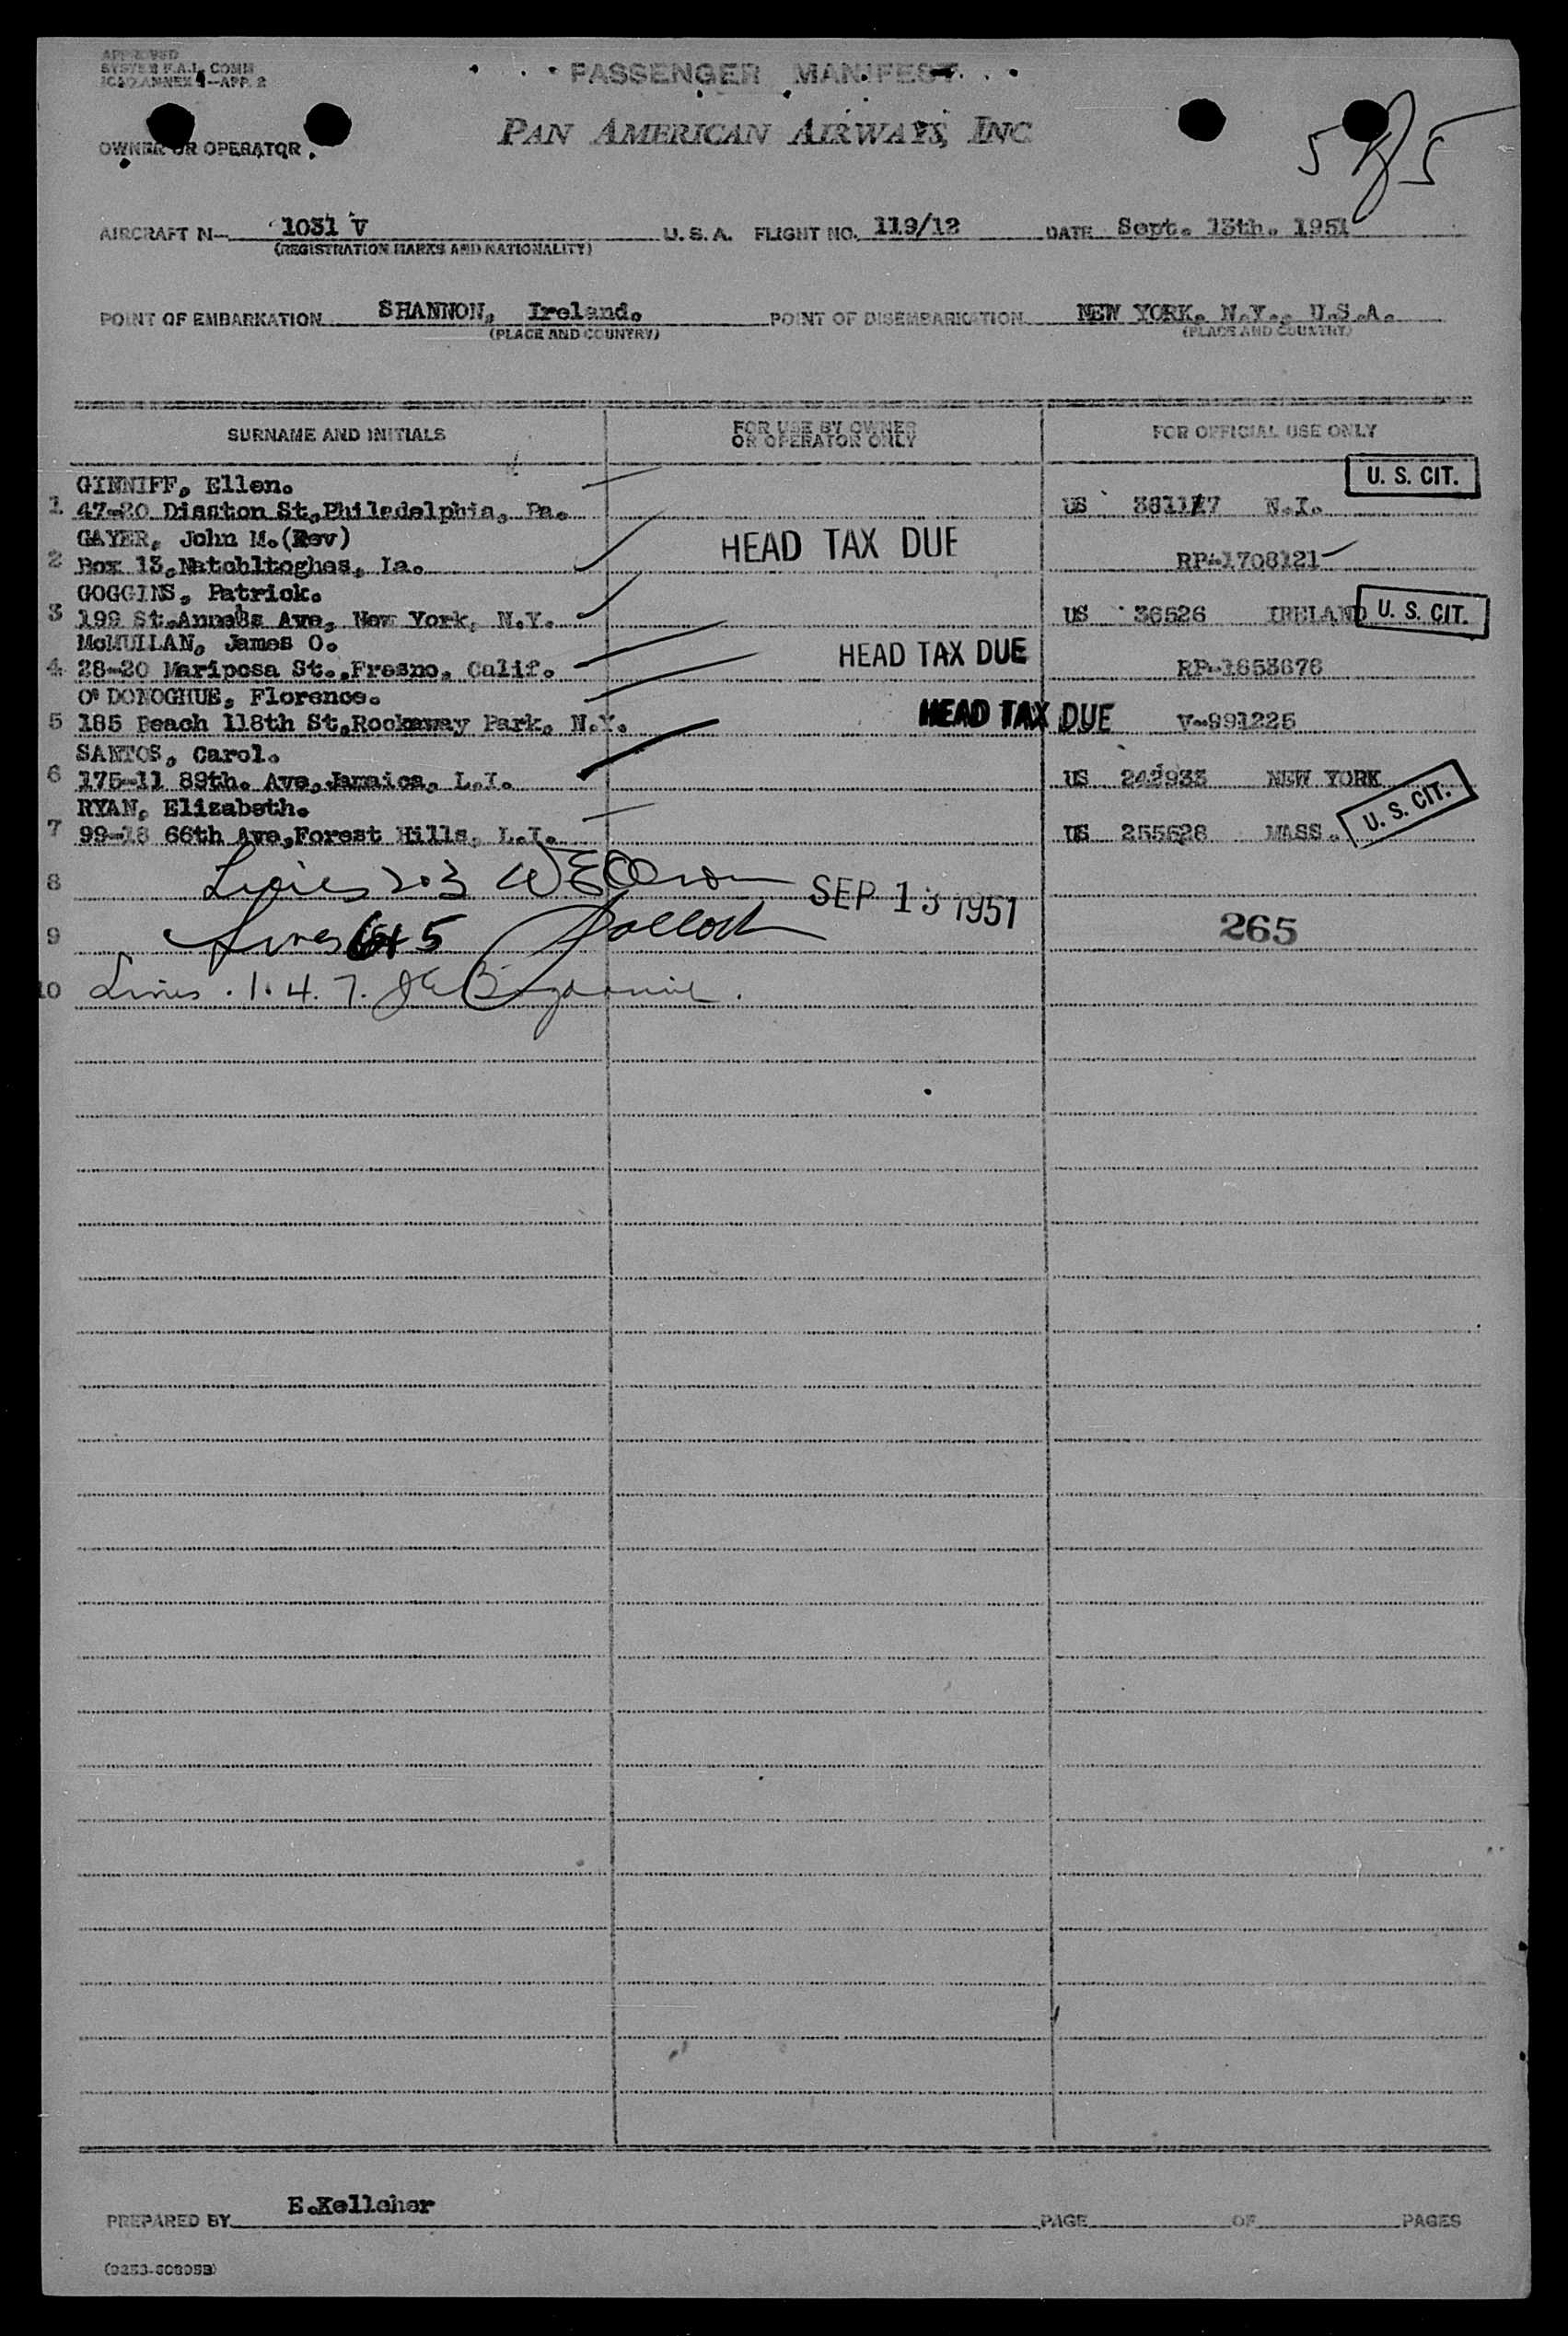 APPROVED
SYSTEM F.A.L. COMM
ICAO ANNEX 9—APP. 2
PASSENGER MANIFEST
OWNER OR OPERATOR
PAN AMERICAN AIRWAYS, INC
5 5
AIRCRAFT N— 1031 V U.S.A. FLIGHT NO. 119/12 DATE Sept. 13th. 1951
(REGISTRATION MARKS AND NATIONALITY)
POINT OF EMBARKATION SHANNON, Ireland. POINT OF DISEMBARKATION NEW YORK. N.Y., U.S.A.
(PLACE AND COUNTRY) (PLACE AND COUNTRY)
SURNAME AND INITIALS FOR USE BY OWNER OR OPERATOR ONLY FOR OFFICIAL USE ONLY
GINNIFF, Ellen. U. S. CIT.
1 47-20 Disston St,Philadelphia, Pa. US 361117 N.I.
GAYER, John M.(Rev) HEAD TAX DUE
2 Box 13,Natchltoghes, La. RP-1708121
GOGGINS, Patrick.
3 199 St.Anne's Ave, New York, N.Y. US 36526 IRELAND U. S. CIT.
McMULLAN, James O. HEAD TAX DUE
4 28-20 Mariposa St.,Fresno, Calif. RP-1653678
O'DONOGHUE, Florence.
5 185 Beach 118th St,Rockaway Park, N.Y. HEAD TAX DUE V-991225
SANTOS, Carol.
6 175-11 89th. Ave,Jamaica, L.I. US 242933 NEW YORK
RYAN, Elizabeth.
7 99-18 66th Ave,Forest Hills, L.I. US 255628 MASS. U. S. CIT.
8 Lines 2+3 SEP 13 1951
9 Lines 6+5 265
10 Lines . 1. 4. 7.
PREPARED BY E.Kelleher PAGE OF PAGES